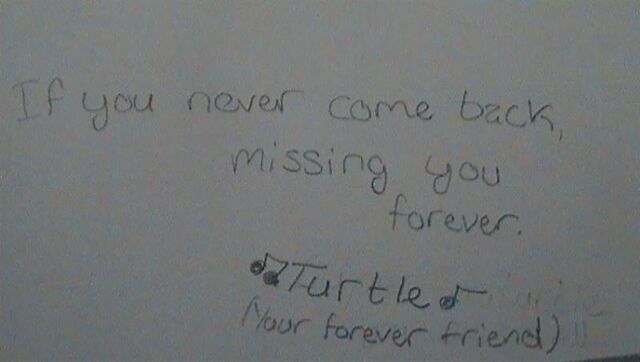 If you never come back,
missing you
forever.
♫Turtle♪
(Your forever friend)